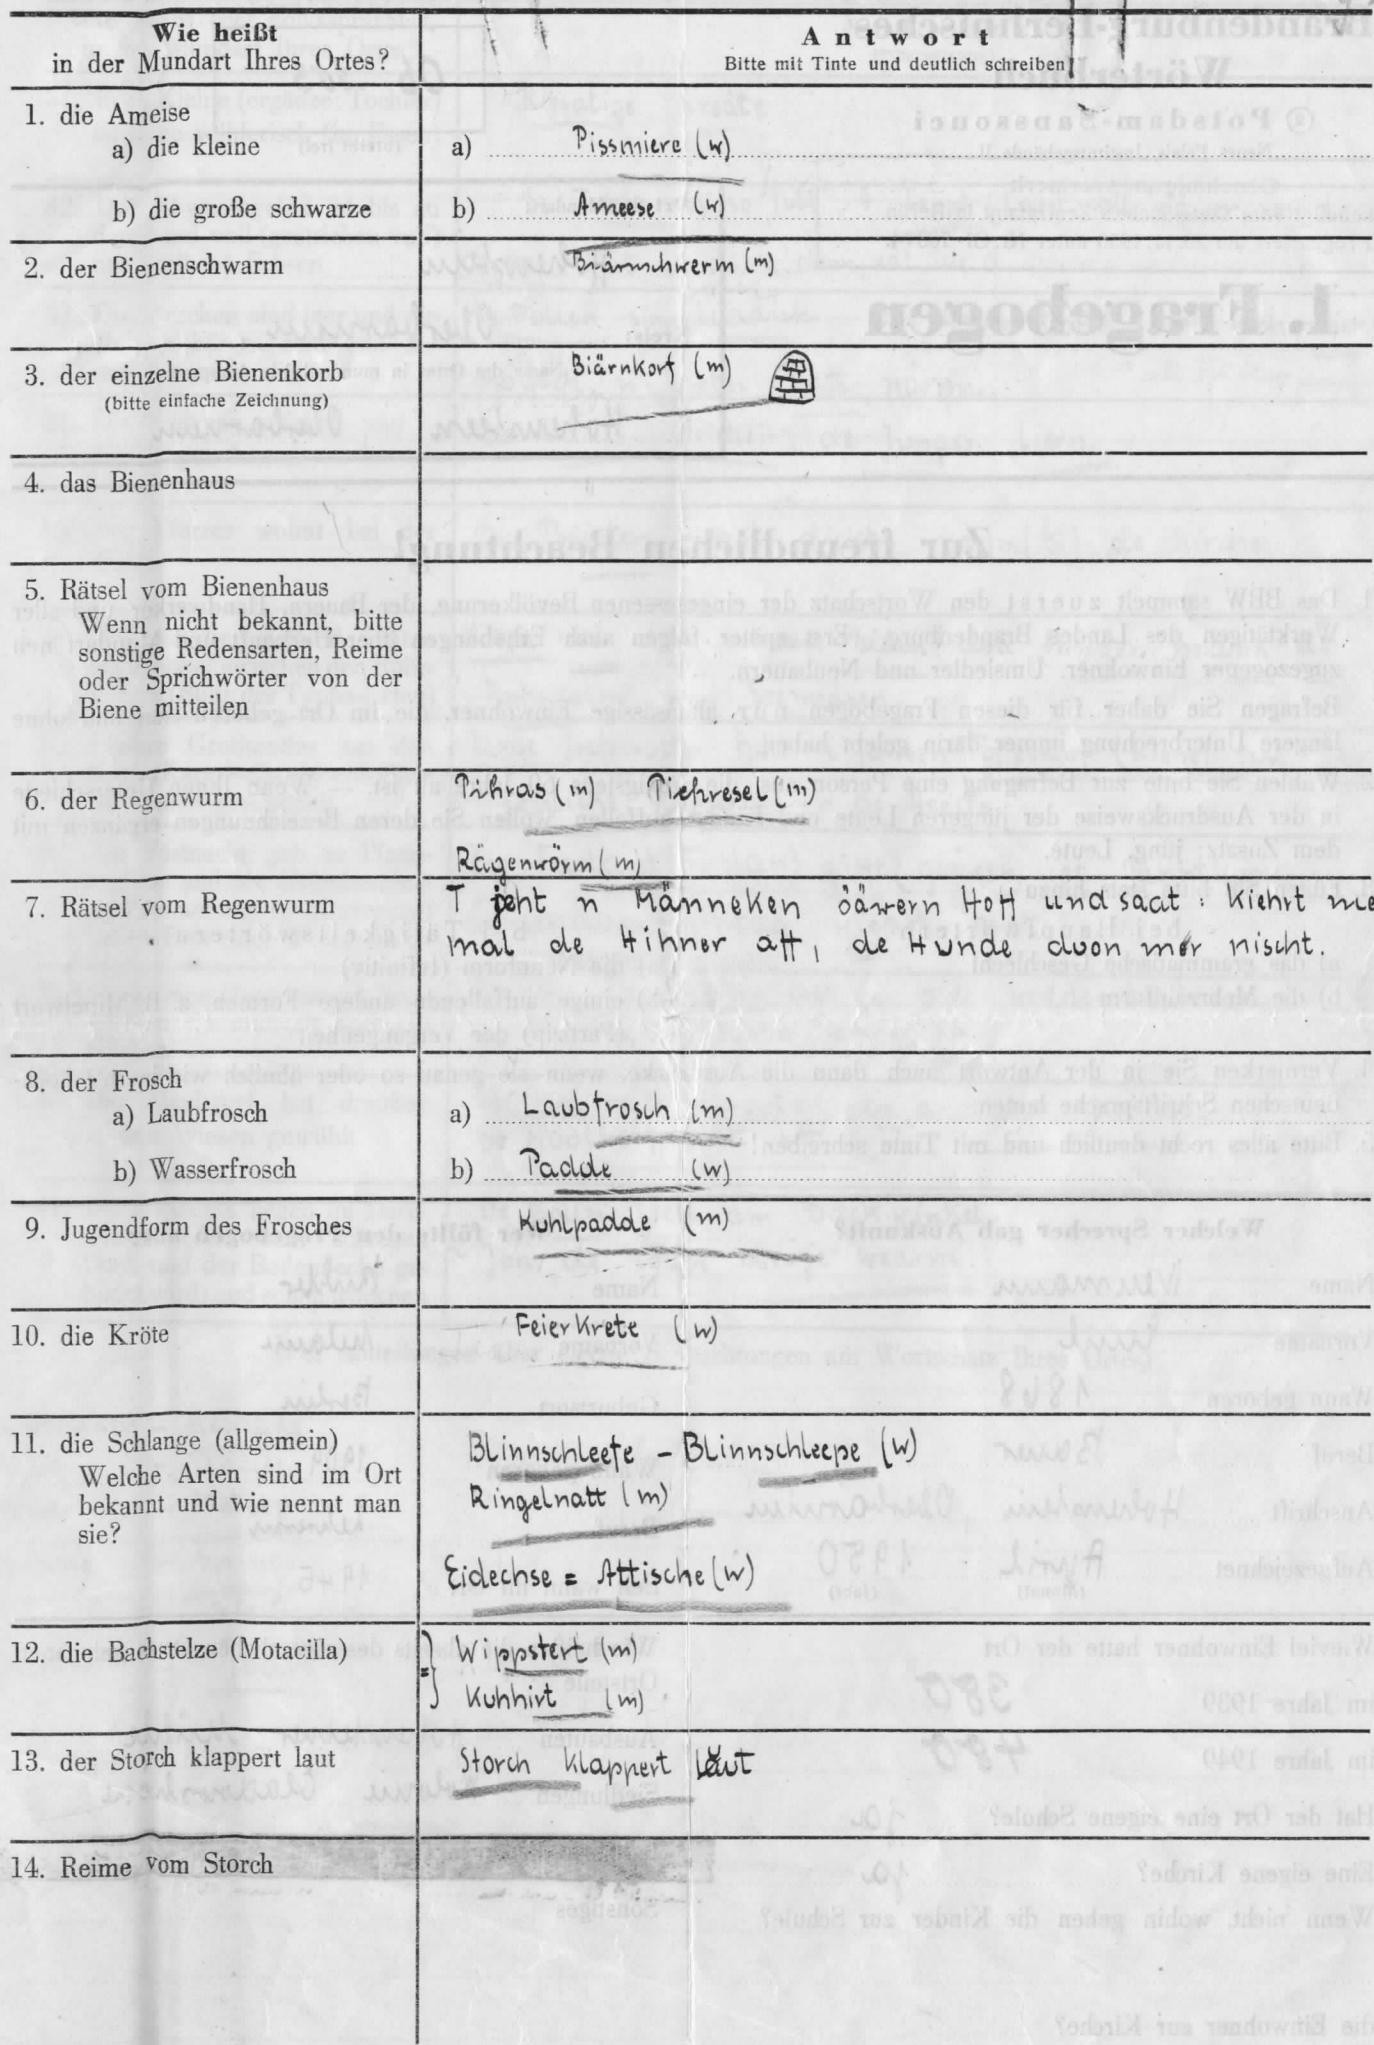 Wie heißt
in der Mundart Ihres Ortes?
Antwort
Bitte mit Tinte und deutlich schreiben!
1. die Ameise
a) die kleine
a) Pissmiere (w)
b) die große schwarze
b) Ameese (w)
2. der Bienenschwarm
Biärnschwerm (m)
3. der einzelne Bienenkorb
(bitte einfache Zeichnung)
Biärnkorf (m)
4. das Bienenhaus
5. Rätsel vom Bienenhaus
Wenn nicht bekannt, bitte
sonstige Redensarten, Reime
oder Sprichwörter von der
Biene mitteilen
6. der Regenwurm
Pihras (m) Piehresel (m)
Rägenwörm (m)
7. Rätsel vom Regenwurm
T jeht n Männeken öäwern Hoff und saat: Kiehrt me
mal de Hihner aff, de Hunde duon mer nischt.
8. der Frosch
a) Laubfrosch
a) Laubfrosch (m)
b) Wasserfrosch
b) Padde (w)
9. Jugendform des Frosches
Kuhlpadde (m)
10. die Kröte
Feierkrete (w)
11. die Schlange (allgemein)
Welche Arten sind im Ort
bekannt und wie nennt man
sie?
Blinnschleefe - Blinnschleepe (w)
Ringelnatt (m)
Eidechse = Attische (w)
12. die Bachstelze (Motacilla)
= Wippstert (m)
Kuhhirt (m)
13. der Storch klappert laut
Storch klappert laut
14. Reime vom Storch